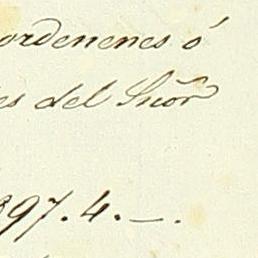 ordenenes ó
es del Snõr
897.4.—.